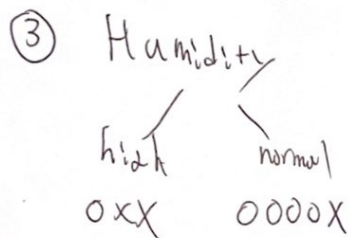 ③ Humidity
high normal
OXX OOOOX